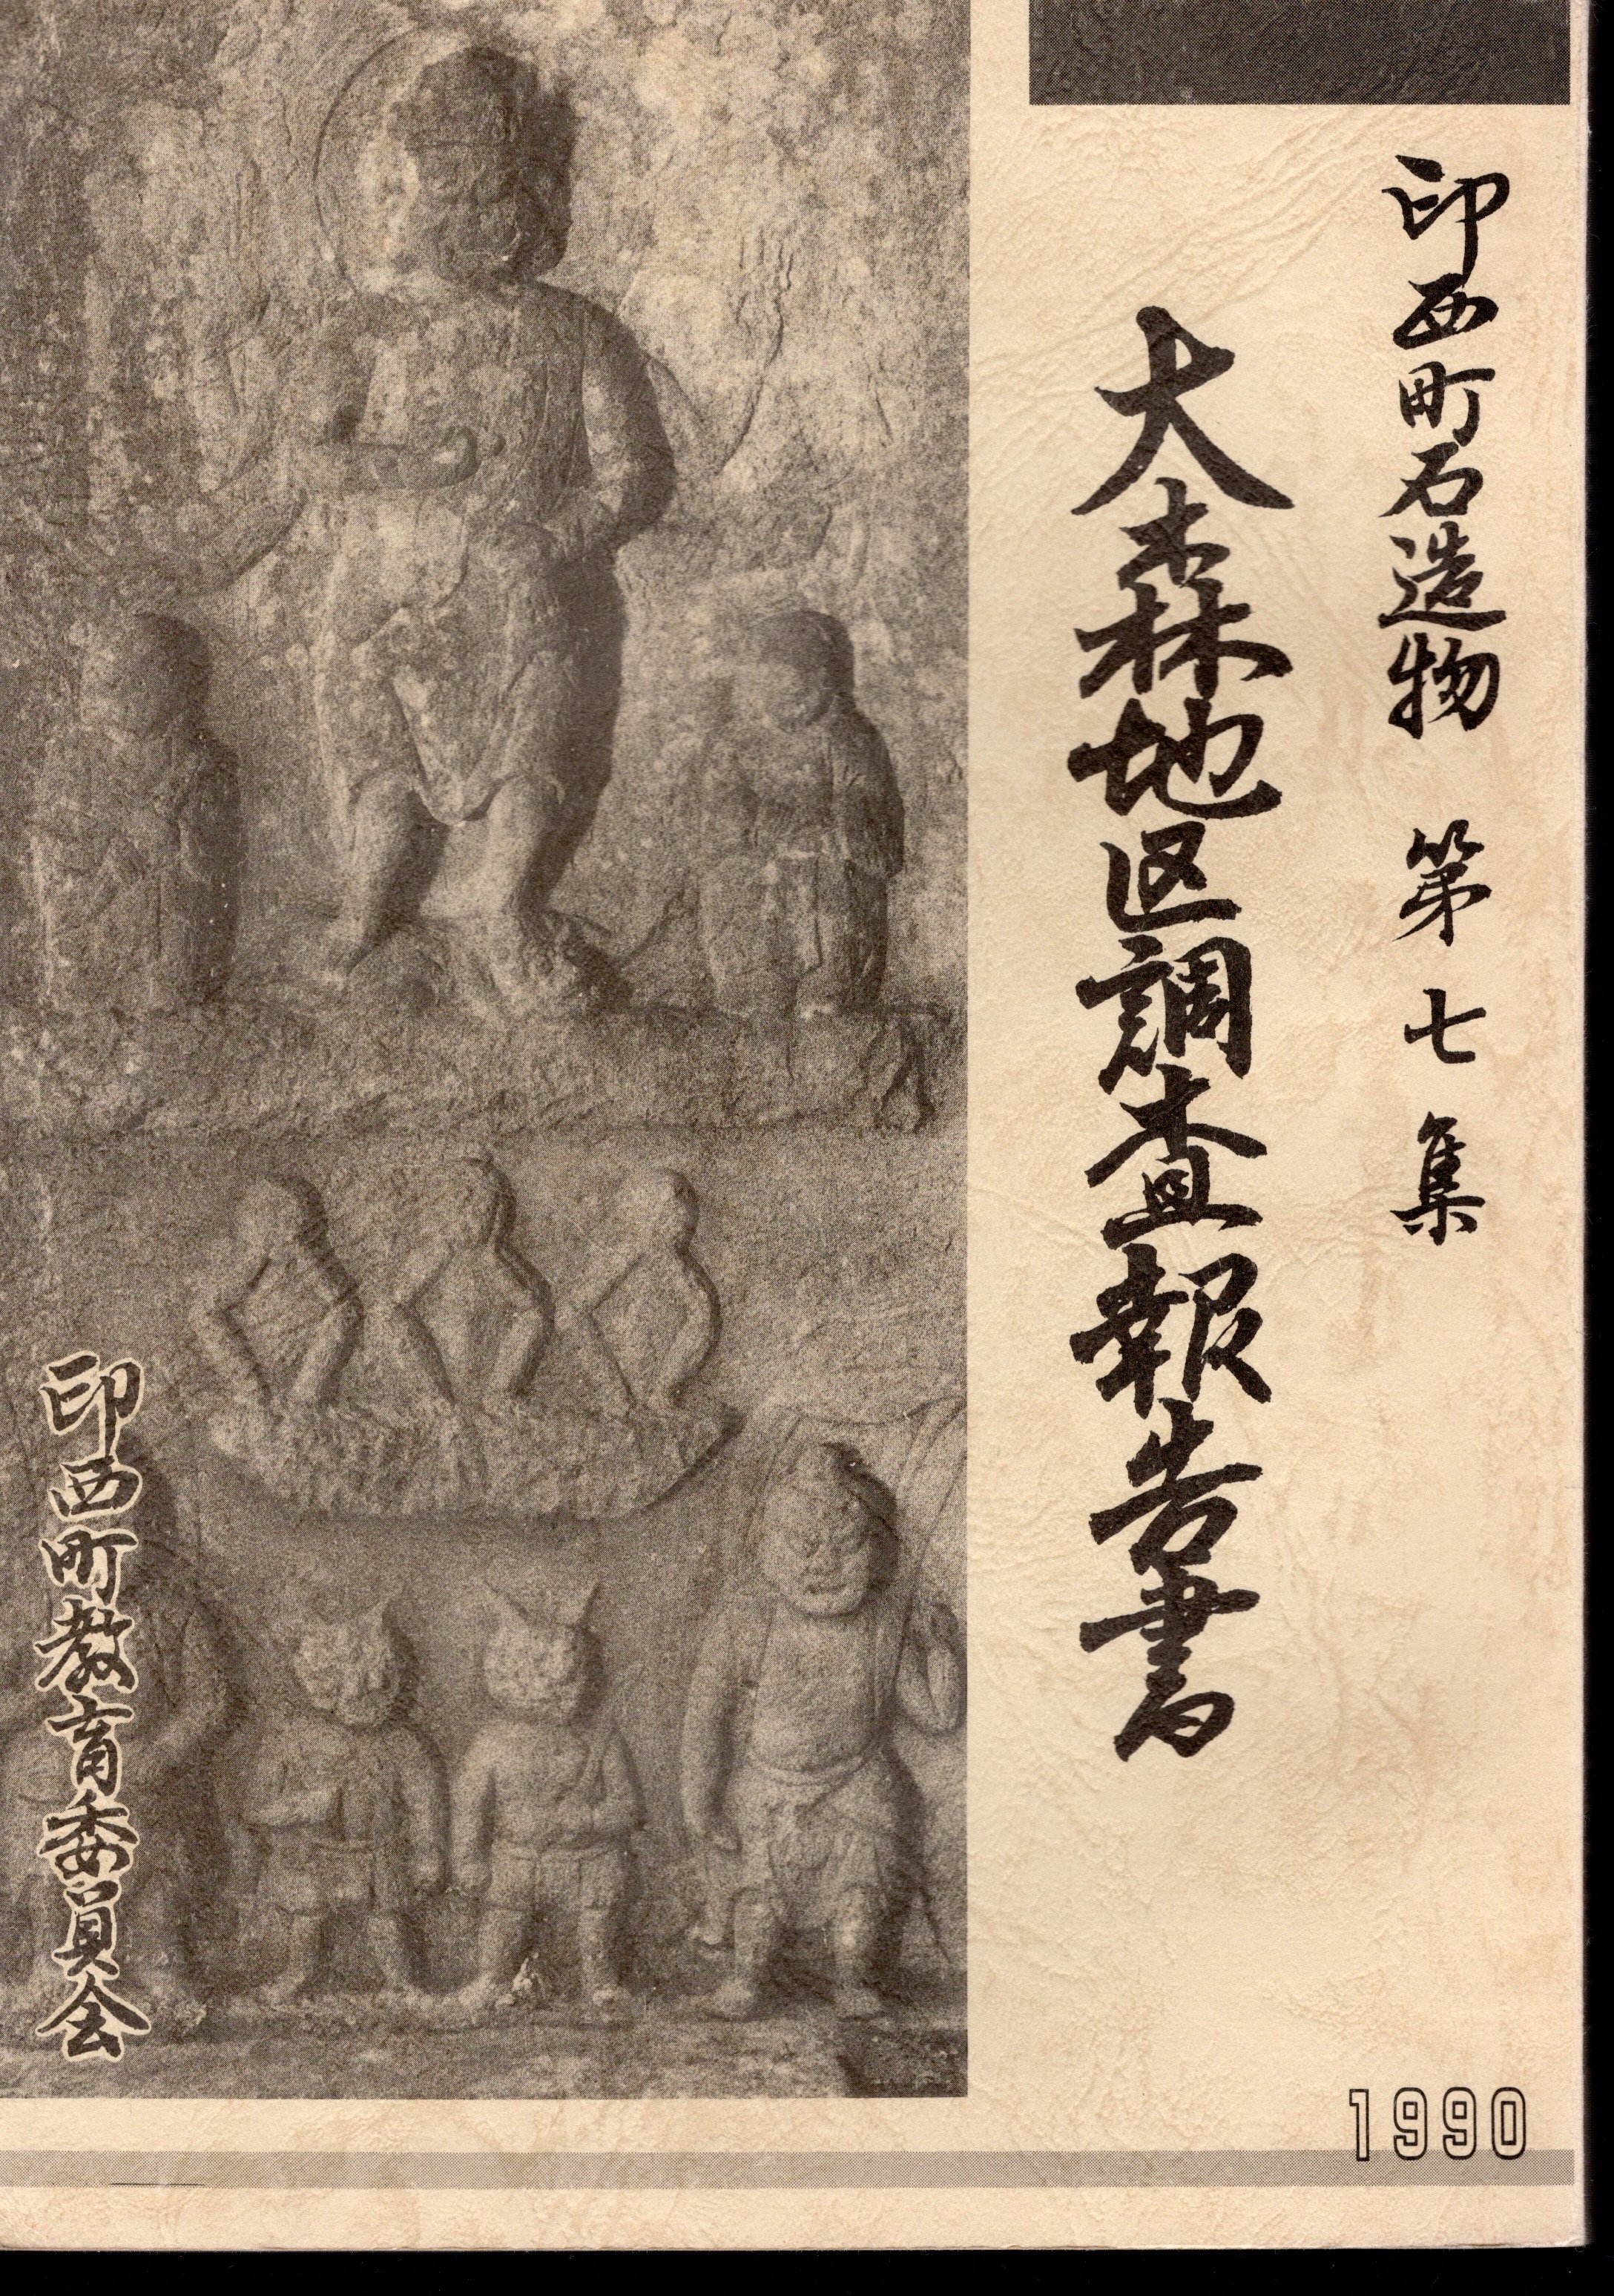 印西町石造物 第七集
大森地区調査報告書
印西町教育委員会
1990